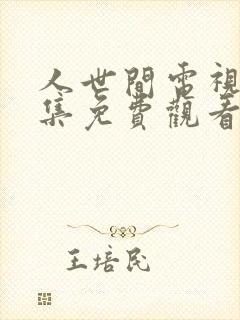 人世間電視
集免費觀看
王培民